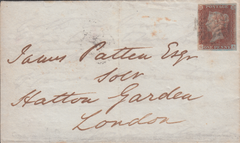 James Patten Esqr
Solr
Hatton Garden
London